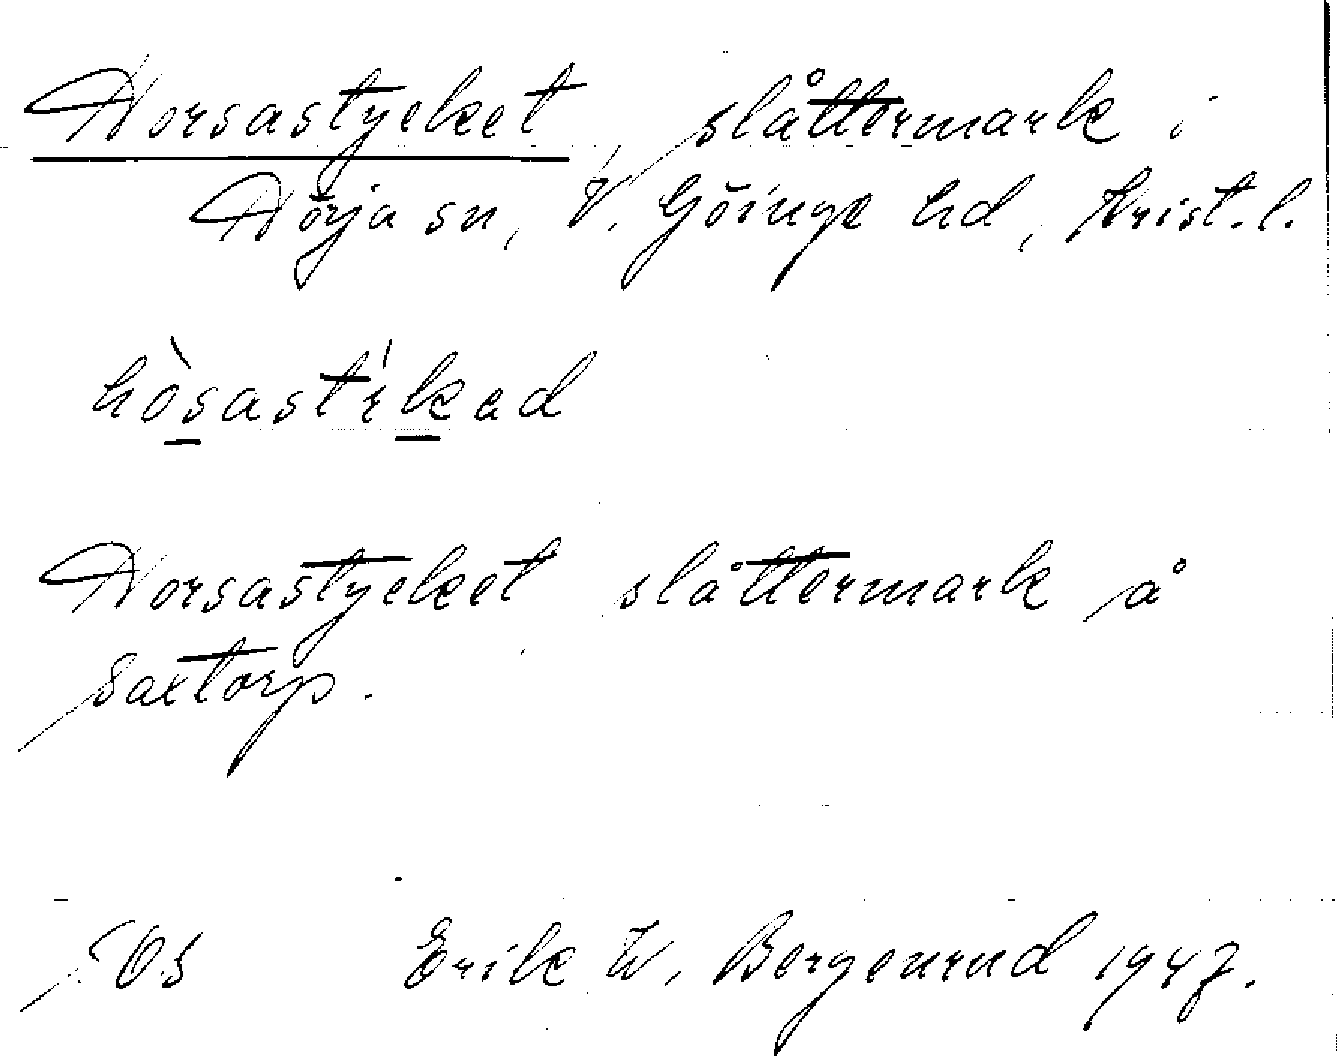 Horsastycket, slåttermark i
Hörja sn, V. Göinge hd, Krist.l.
hòsastíkad
Horsastycket slåttermark å
Saxtorp.
Erik W. Bergenrud 1947.